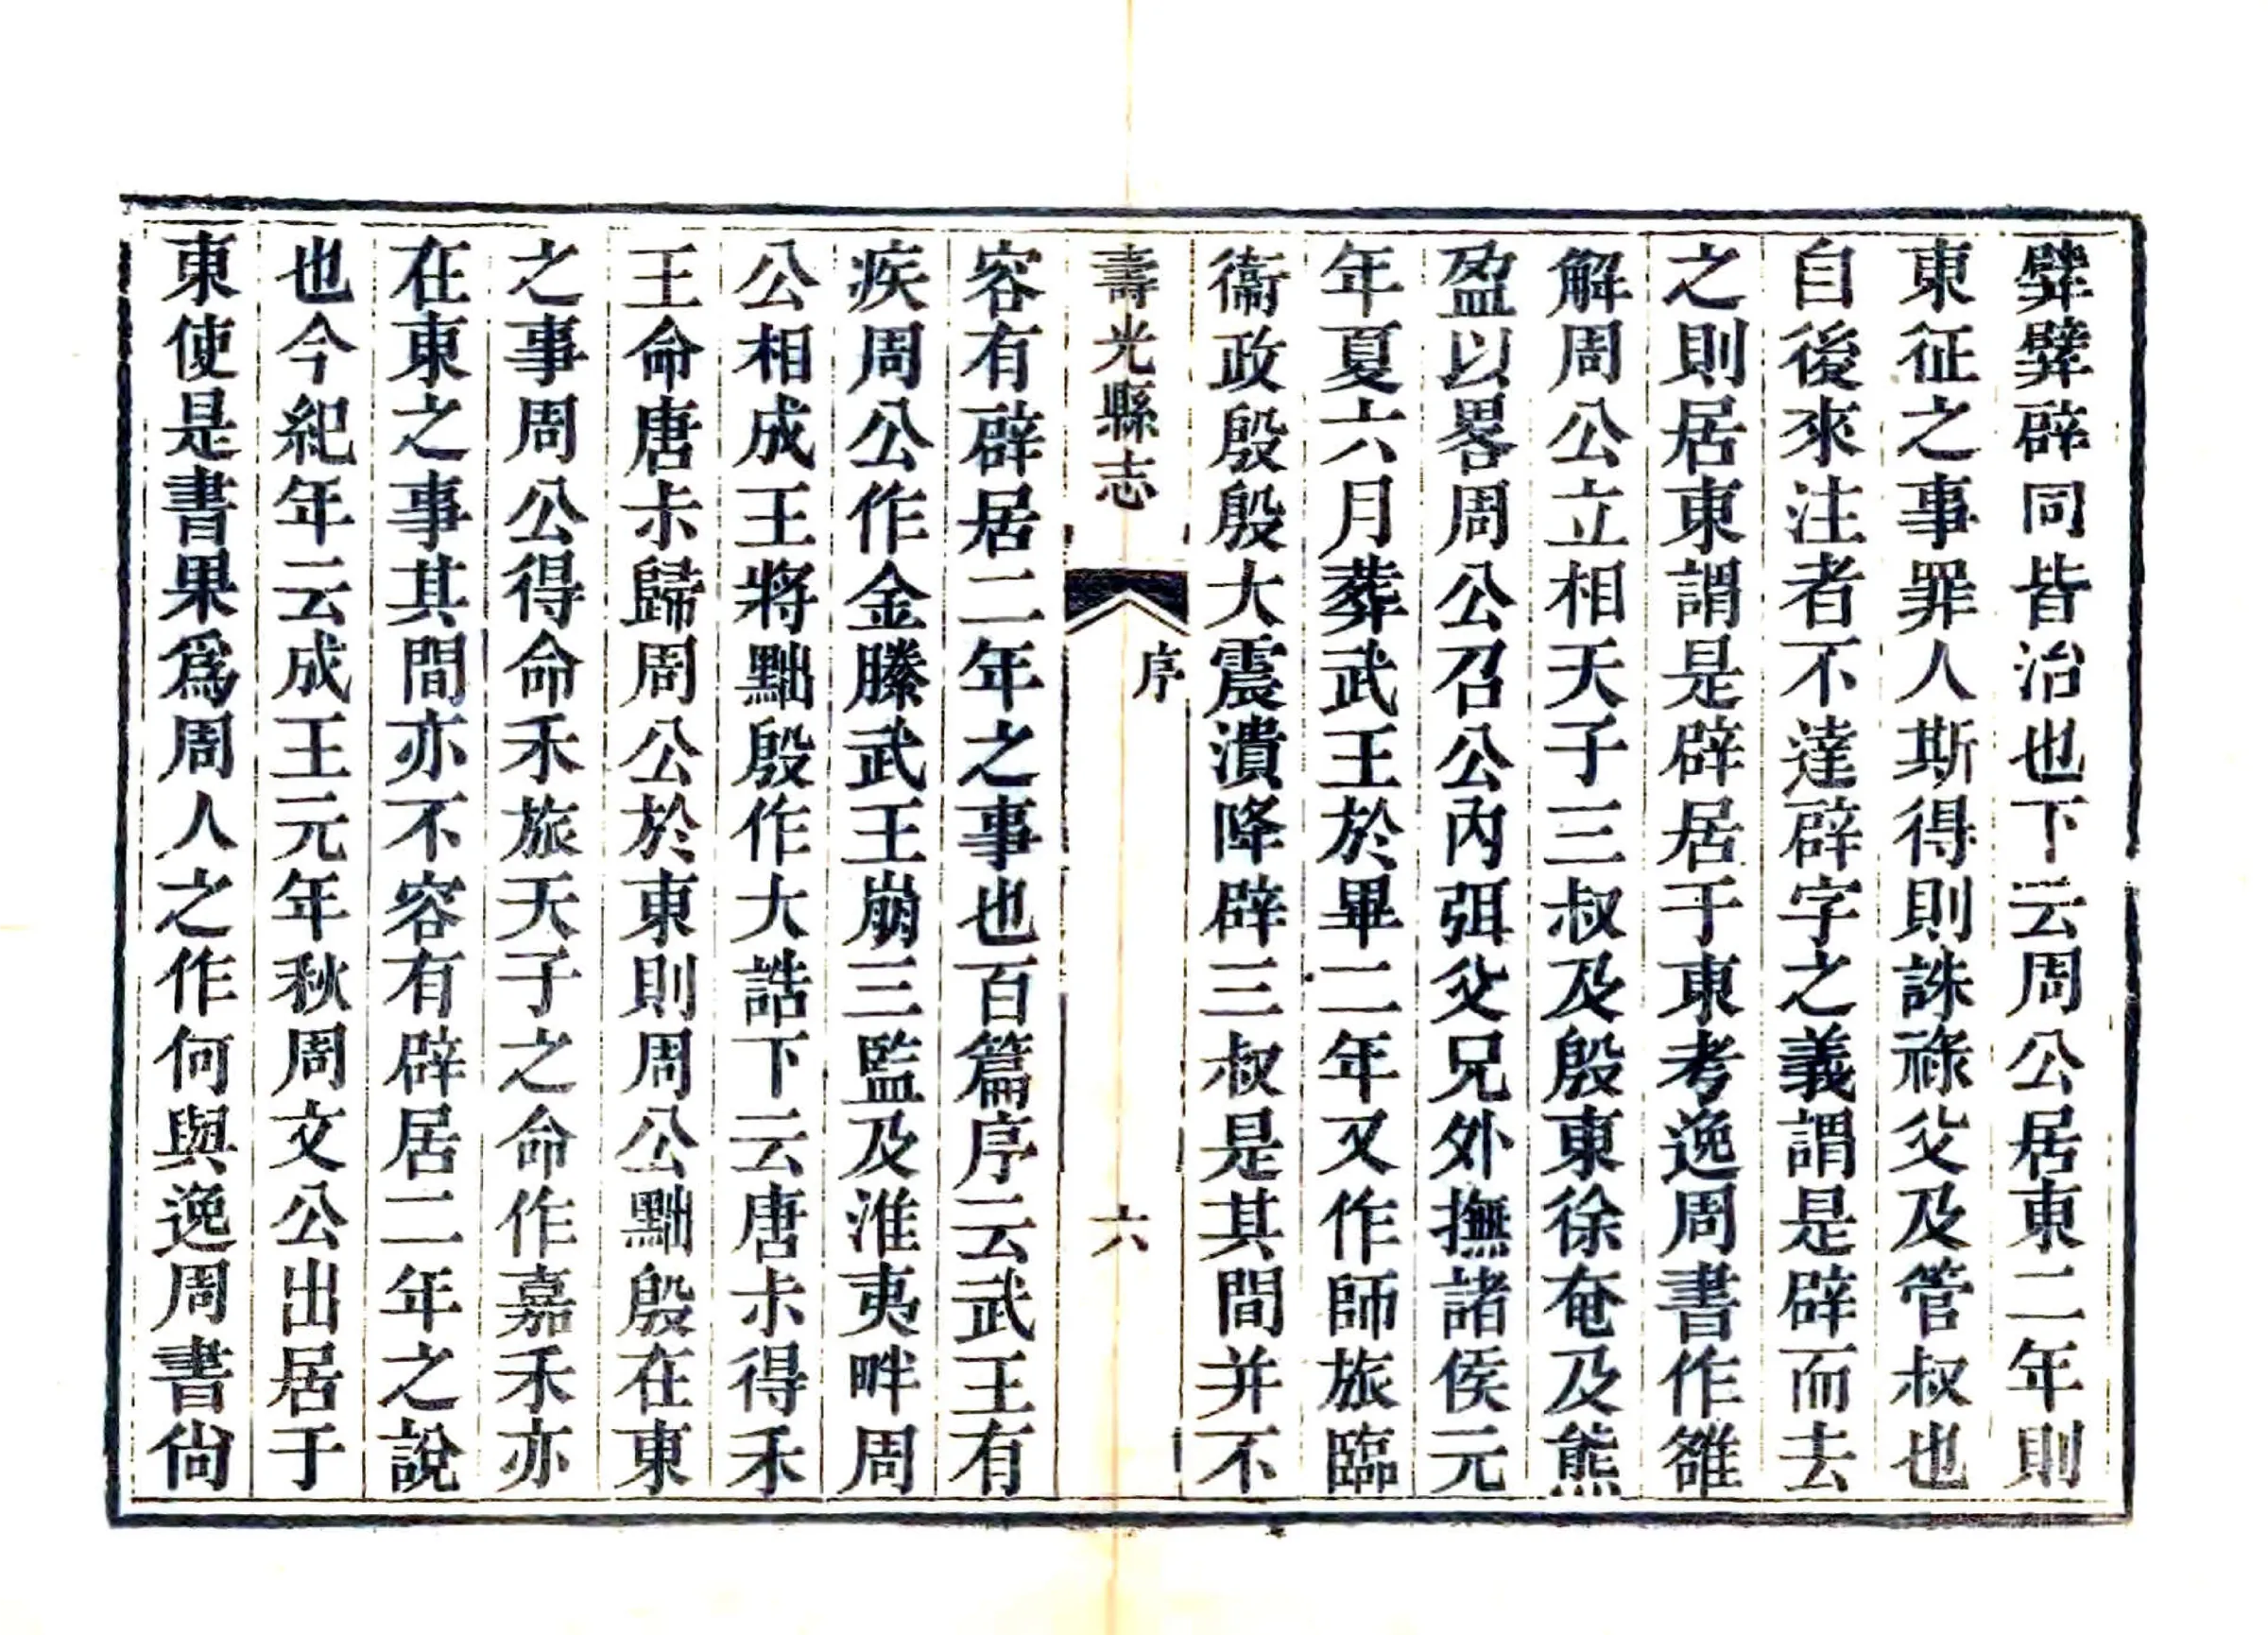 辟同皆治也下云周公居東二年則
東征之事罪人斯得則誅祿父及管叔也
自後來注者不達辟字之義謂是辟而去
之則居東謂是辟居于東考逸周書作雒
解周公立相天子三叔及殷東徐奄及熊
盈以畧周公召公內弭父兄外撫諸侯元
年夏六月葬武王於畢二年又作師旅臨
衞政殷殷大震潰降辟三叔是其間并不
壽光縣志
序
六
容有辟居二年之事也百篇序云武王有
疾周公作金縢武王崩三監及淮夷畔周
公相成王將黜殷作大誥下云唐尗得禾
王命唐尗歸周公於東則周公黜殷在東
之事周公得命禾旅天子之命作嘉禾亦
在東之事其間亦不容有辟居二年之說
也今紀年云成王元年秋周文公出居于
東使是書果爲周人之作何與逸周書尙